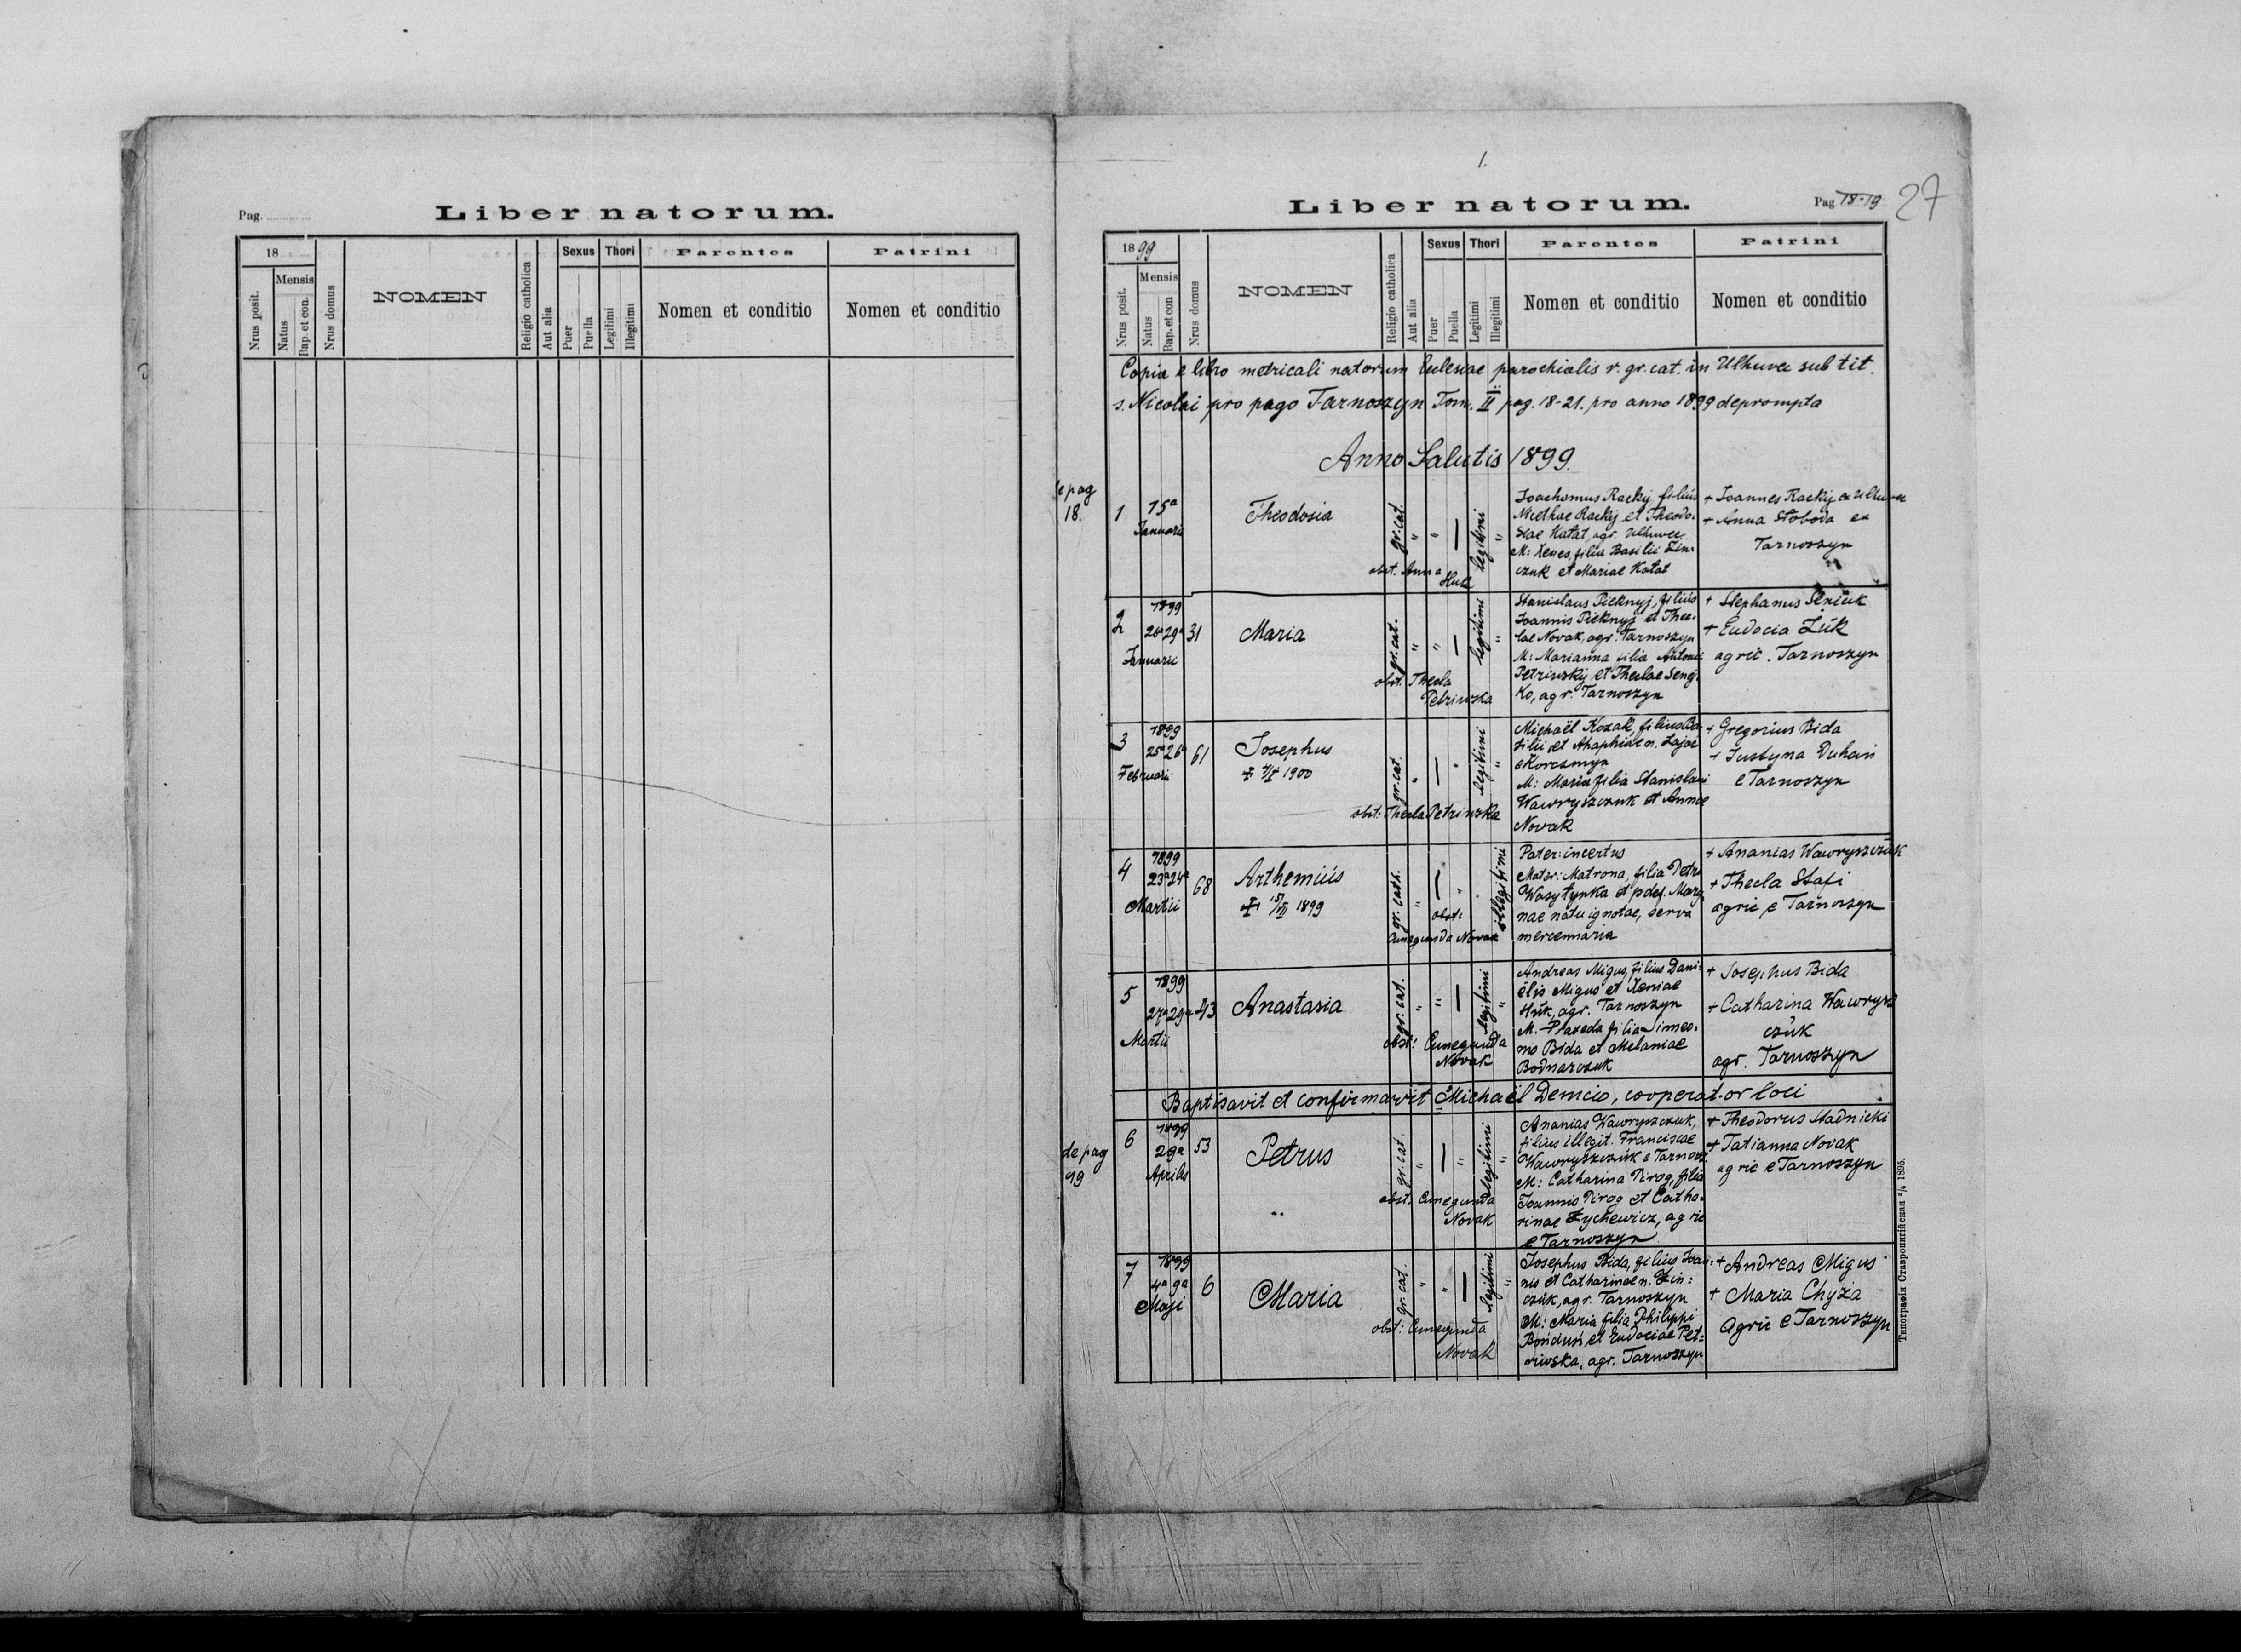 Pag.
Liber natorum.
18
Mensis
Nrus posit.
Natus
Bap. et con.
Nrus domus
NOMEN
Religio catholica
Aut alia
Sexus
Puer
Puella
Thori
Legitimi
Illegitimi
Parentes
Nomen et conditio
Patrini
Nomen et conditio
1.
Liber natorum.
Pag 18-19
27
1899
Mensis
Nrus posit.
Natus
Bap. et con
Nrus domus
NOMEN
Religio catholica
Aut alia
Sexus
Puer
Puella
Thori
Legitimi
Illegitimi
Parentes
Nomen et conditio
Patrini
Nomen et conditio
Copia e libro metricali natorum Eclesiae parochialis r. gr. cat. in Ulhuvek sub tit.
s. Nicolai pro pago Tarnoszyn Tom. II pag. 18-21. pro anno 1899 deprompta
Anno Salutis 1899.
e pag
18.
1
15a
Januarii
Theodosia
gr. cat.
"
"
—
legitimi
"
obst. Anna
Huk
Joachomus Rackij filius
Nicethae Rackij et Theodo-
siae Katat, agr. Ulhuvec
M: Xenes, filia Basilii Zin-
czuk et Mariae Katat
+ Joannes Rackij ex Ulhuvec
+ Anna Stoboda ex
Tarnoszyn
2
1899
28a 29a
Januarii
31
Maria
gr. cat.
"
"
—
legitimi
"
obst. Thecla
Petriwska
Stanislaus Pieknyj, filius
Joannis Pieknyj et Thec-
lae Novak, agr. Tarnoszyn
M: Marianna filia Antonii
Petriwskij et Theclae Seng-
ko, agr. Tarnoszyn
+ Stephanus Seniuk
+ Eudocia Zuk
agric. Tarnoszyn
3
1899
25a 26a
Februarii
61
Josephus
1900
gr. cat.
"
—
"
legitimi
"
obst: Thecla Petriwska
Michaël Kozak, filius Ba-
silii et Ahaphiae n. Zajac
e Korczmyn
M: Maria filia Stanislai
Wawryszczuk et Annae
Novak
+ Gregorius Bida
+ Justyna Duhan
e Tarnoszyn
4
1899
23a 24a
Martii
68
Arthemius
1899
gr. cath.
"
—
"
illegitimi
obst:
Cunegunda Novak
Pater: incertus
Mater: Matrona, filia Petri
Wasytynka et pdef. Mary-
nae natu ignotae, serva
mercennaria
+ Ananias Wawryszczuk
+ Thecla Stafi
agric e Tarnoszyn
5
1899
27a 29a
Martii
43
Anastasia
gr. cat.
"
"
—
legitimi
"
obst: Cunegunda
Novak
Andreas Migus, filius Dani-
élis Migus et Xeniae
Huk, agr. Tarnoszyn
M. Praxeda filia Simeo-
nis Bida et Melaniae
Bodnarczuk
+ Josephus Bida
+ Catharina Wawrysz
czuk
agr. Tarnoszyn
Baptisavit et confirmavit Michaël Demcio, cooperator loci
de pag
19
6
1899
29a
Aprilis
53
Petrus
gr. cat.
"
—
"
legitimi
"
obst. Cunegunda
Novak
Ananias Wawryszczuk,
filius illegit. Franciscae
Wawryszczuk e Tarnosz.
M: Catharina Pirog, filia
Joannis Pirog et Catha-
rinae Zychewicz, agric
e Tarnoszyn
+ Theodorus Stadnicki
+ Tatianna Novak
agric e Tarnoszyn
7
1899
4a 9a
Maji
6
Maria
gr. cat.
"
"
—
legitimi
"
obst: Cunegunda
Novak
Josephus Bida, filius Joan-
nis et Catharinae n. Zin-
czuk, agr. Tarnoszyn
M: Maria filia Philippi
Bondun et Eudociae Pet-
riwska, agr. Tarnoszyn
+ Andreas Migus
+ Maria Chyża
Agric e Tarnoszyn
Типографія Ставропигійская 1895.